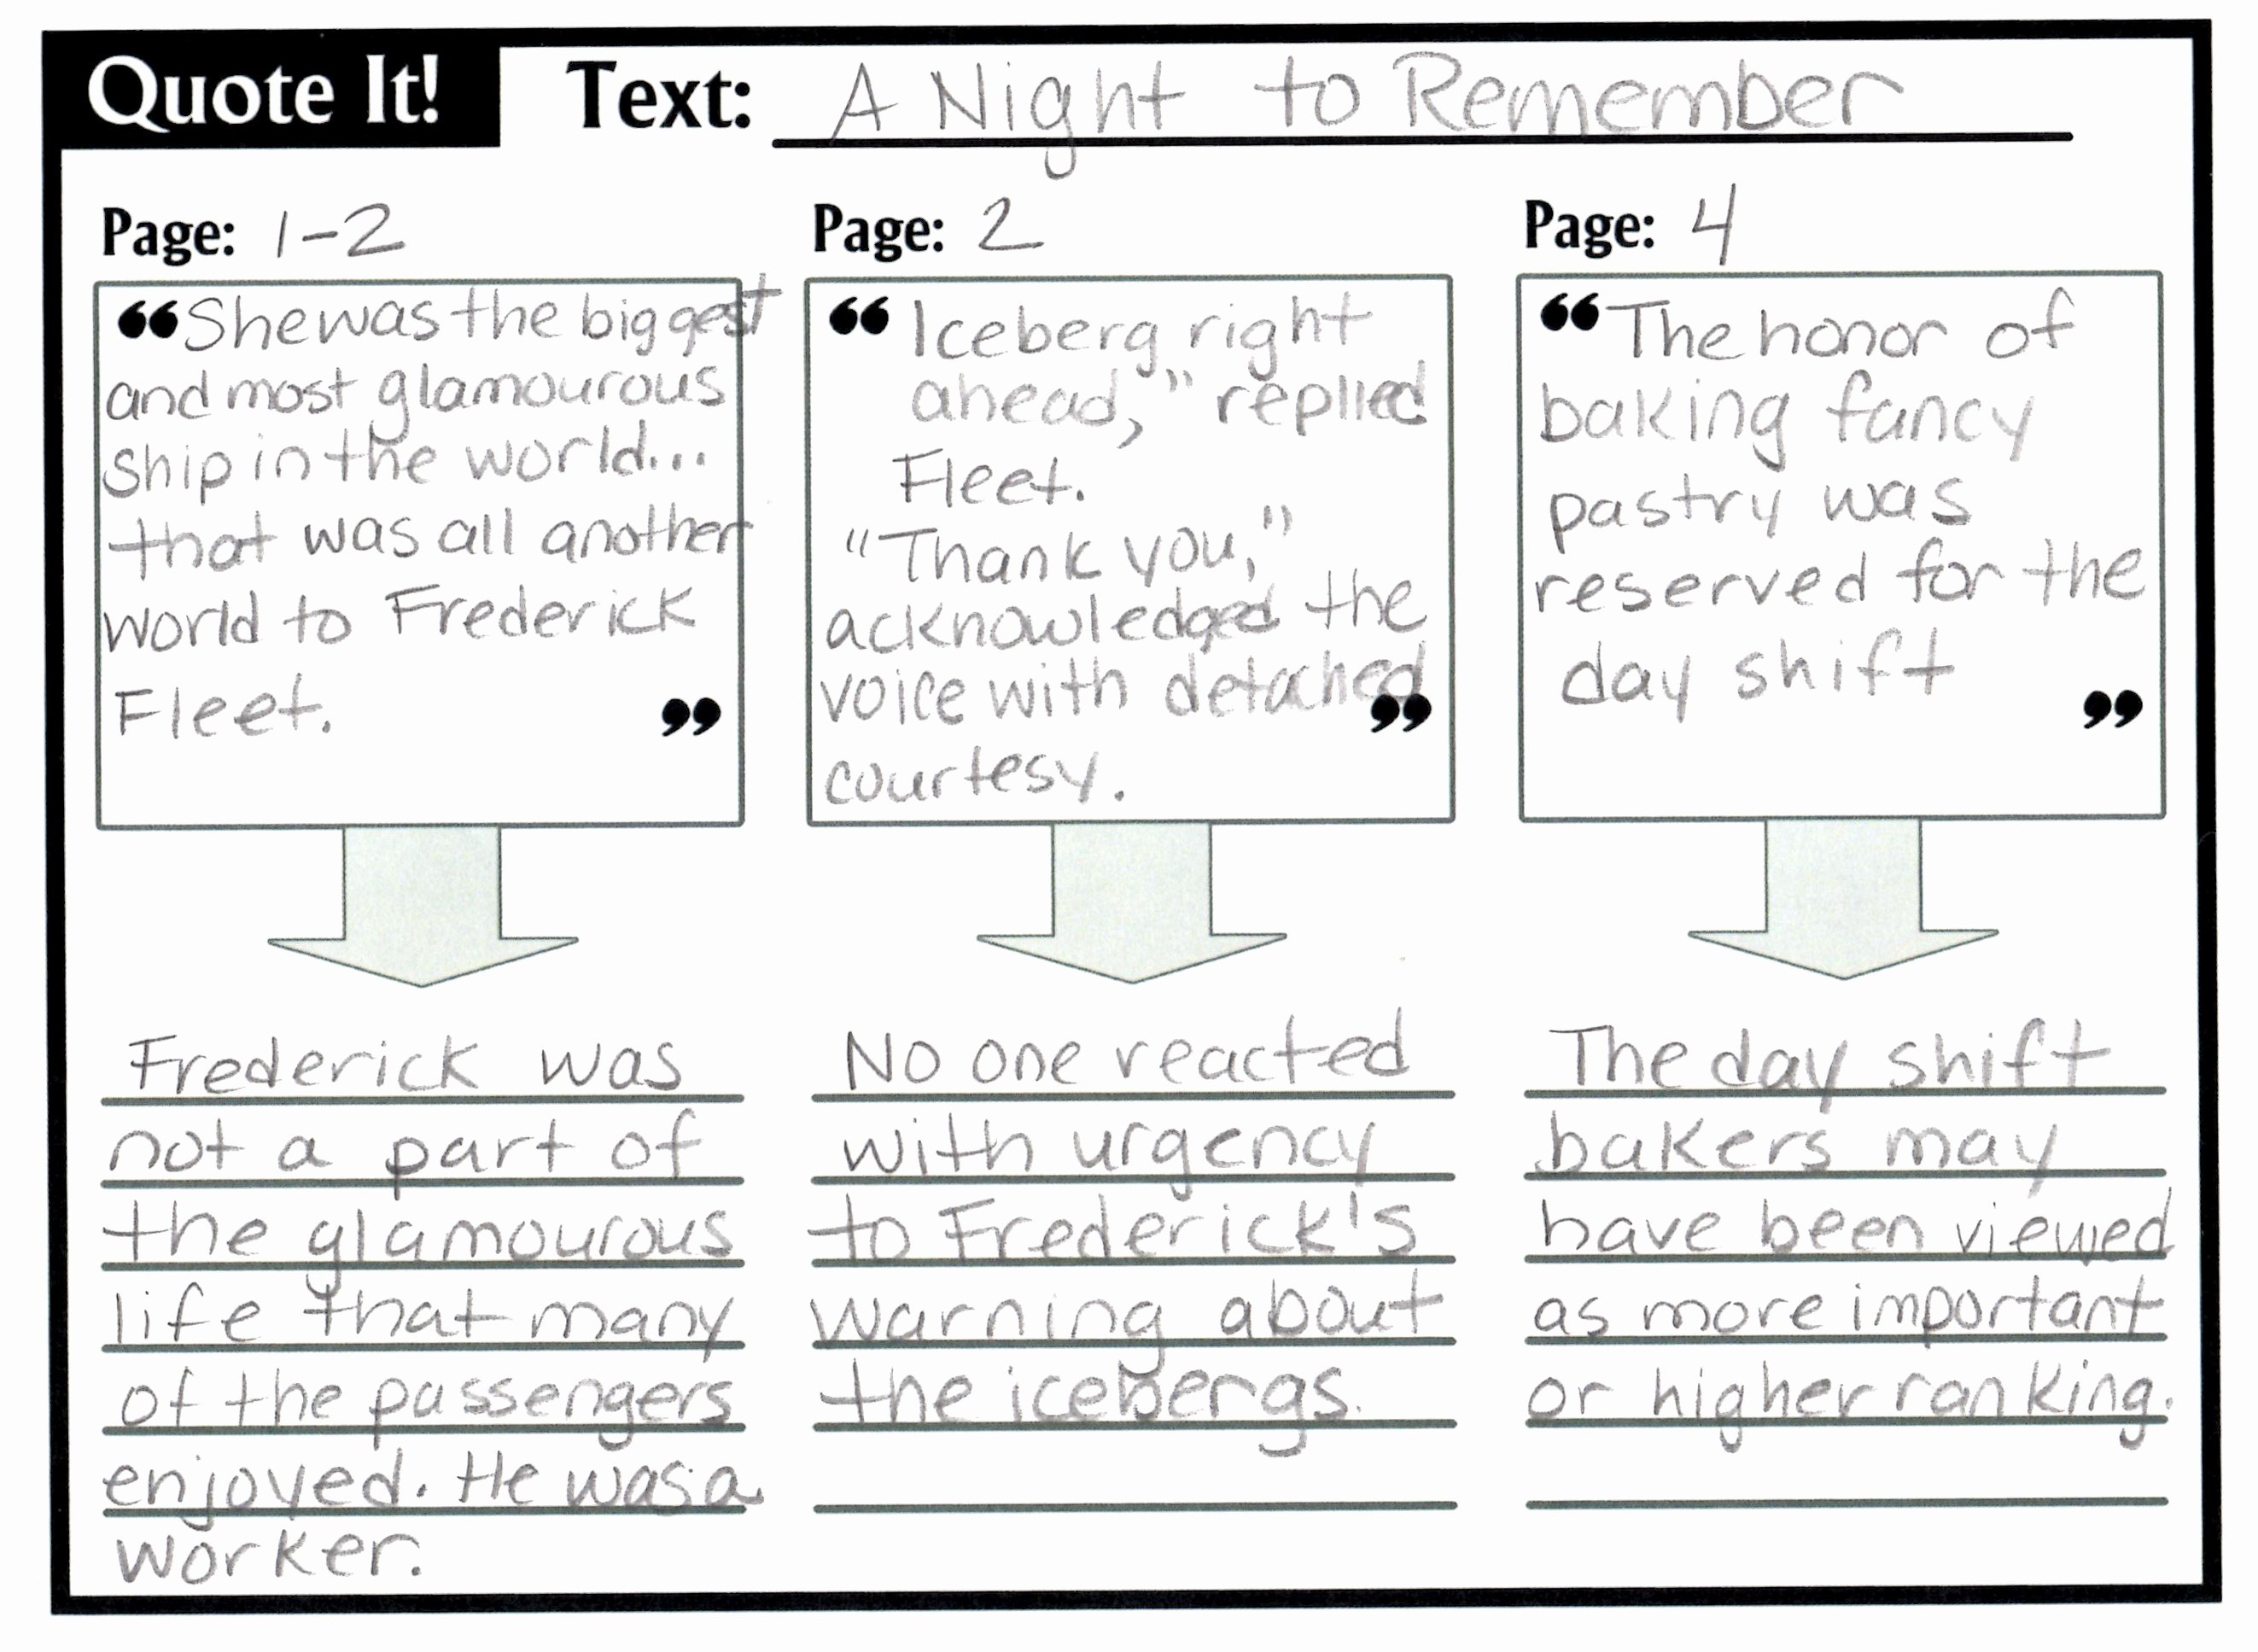 Quote It! Text: A Night to Remember
Page: 1-2
“She was the biggest
and most glamourous
ship in the world...
that was all another
world to Frederick
Fleet. ”
Frederick was
not a part of
the glamourous
life that many
of the passengers
enjoyed. He was a
worker.
Page: 2
“Iceberg right
ahead," replied
Fleet.
"Thank you,"
acknowledged the
voice with detached
”
courtesy.
No one reacted
with urgency
to Frederick's
warning about
the icebergs.
Page: 4
“The honor of
baking fancy
pastry was
reserved for the
day shift
”
The day shift
bakers may
have been viewed
as more important
or higher ranking.